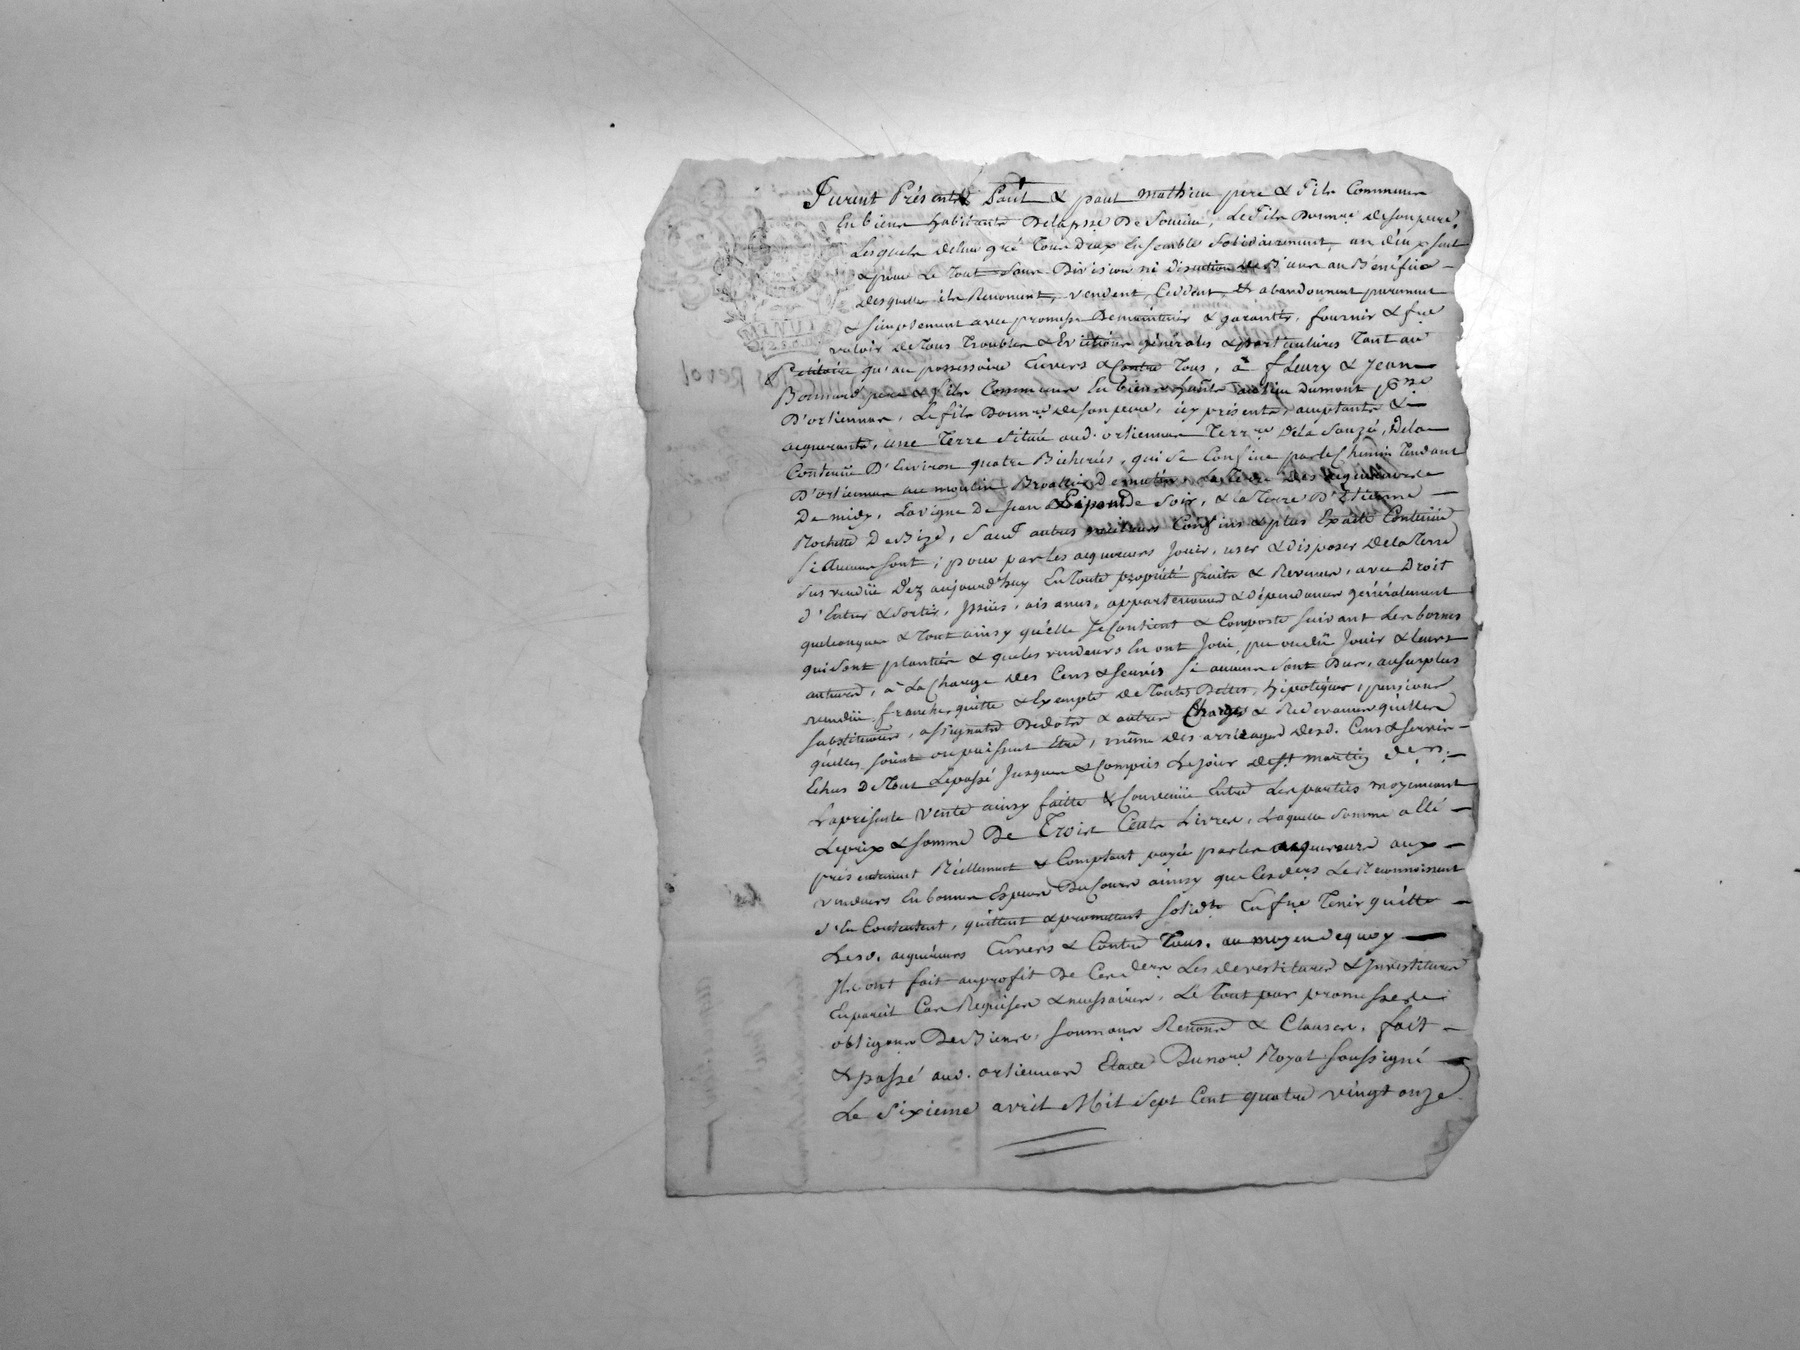 Furent Présents Paul & paul mathieu pere & Fils Commune
En biens habitants Delapsse De Soucieu, Le Fils Donnre de son pere,
Lesquels deleur gré Tous Deux Ensemble Solidairement un d'eux seul
& pour Le Tout Sans Division ni discution de Biens au Bénéfice
desquelles ils Renoncent, vendent, Cedent, & abandonnent purement
& simplement avec promesse De maintenir & garantir, fournir & fre
valoir de Tous Troubles & Evictions générales & particulieres Tant au
Petitoire qu'au possessoire Envers & Contre Tous, à fleury & Jean
Bonnard pere & fils Commune En biens habts au lieu Dumont psse
D'orliennas, Le fils Donnre de son pere, icy présents, acceptants &
acquerants, une Terre Située aud. orliennas Terre De la Souzé, Dela
Contenue D'Environ quatre Bicherées, qui se Confine par le Chemin Tendant
D'orliennas au moulin de matin, La Terre des acquereurs de
De midy, La vigne De Jean De Soir, & la Terre D'Etienne
Rochette De Bize, Sauf autres meilleurs Confins & plus Exacte Contenue
Si Aucuns sont; pour par les acquereurs Jouir, user & disposer Dela Terre
Sus vendue Dez aujourd'huy En Toute propriété fruits & Revenus, avec Droit
d'Entrer & Sortir, Issües, aisances, appartenances & dépendances généralement
quelconques & Tout ainsy qu'elle Se Contient & Comporte Suivant Les bornes
qui Sont plantées & que les vendeurs En ont Joui, pu ou dû Jouir & leurs
auteurs, à La Charge des Cens & Servis Si aucuns Sont Dus, au surplus
vendüe franche, quitte & Exempte de Toutes Dettes, hipotèques, pensions
Substitutions, assignats Dedots & autres Charges & Redevances quelles
qu'elles soient ou puissent Etre, même des arrérages desd. Cens & servis
Echus de Tout Lepassé Jusques & Compris Le jour de St martin der.
La présente vente ainsy faitte & Convenüe Entre Les parties moyennant
Le prix & Somme De Trois Cents Livres, Laquelle Somme a été
présentement Réellement & Comptant payée par les acquereurs aux
vendeurs En bonnes Especes Du Cours ainsy que les ders Le Reconnoissent
s'En Contentent, quittent & promettent Solidt En fre Tenir quitte
Lesd. acquéreurs Envers & Contre Tous. au moyen de quoy
Ils ont fait au profit De Ces ders Les devestitures & Investitures
En pareil Cas Requises & necessaires. Le Tout par promesse de
obligons De Biens, Soumons Renons & Clauses. fait
& passé aud. orliennas Etude Dunore Royal Soussigné
Le Sixieme avril Mil Sept Cent quatre vingt onze